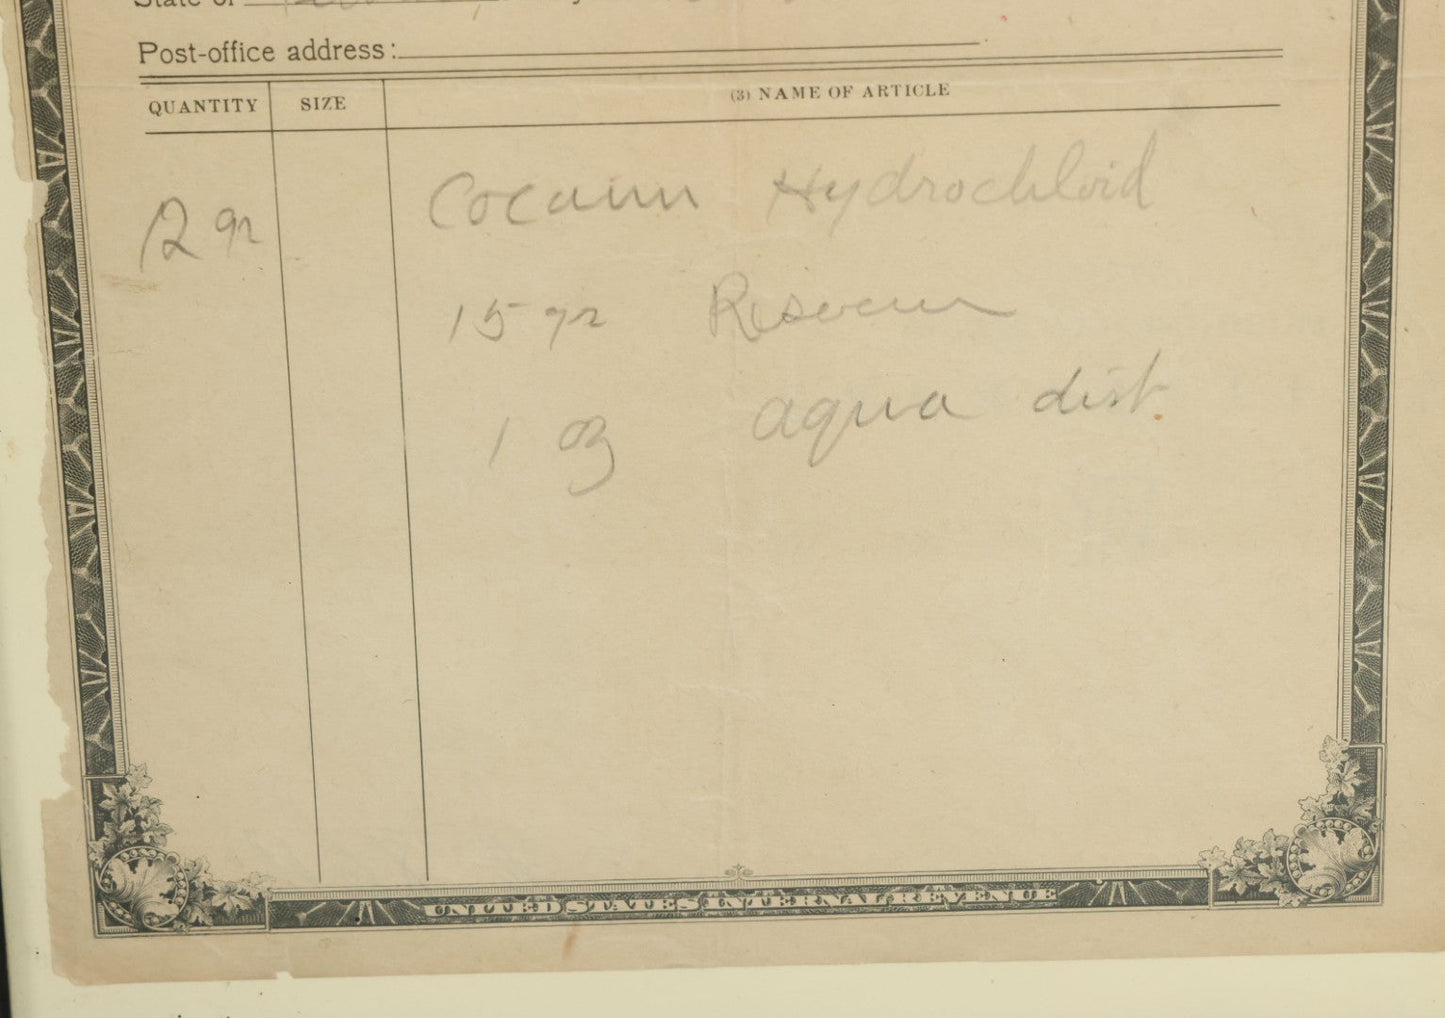 State of
Post-office address:
QUANTITY SIZE (3) NAME OF ARTICLE
12 gr Cocain Hydrochloid
15 gr
1 oz aqua dist.
UNITED STATES INTERNAL REVENUE